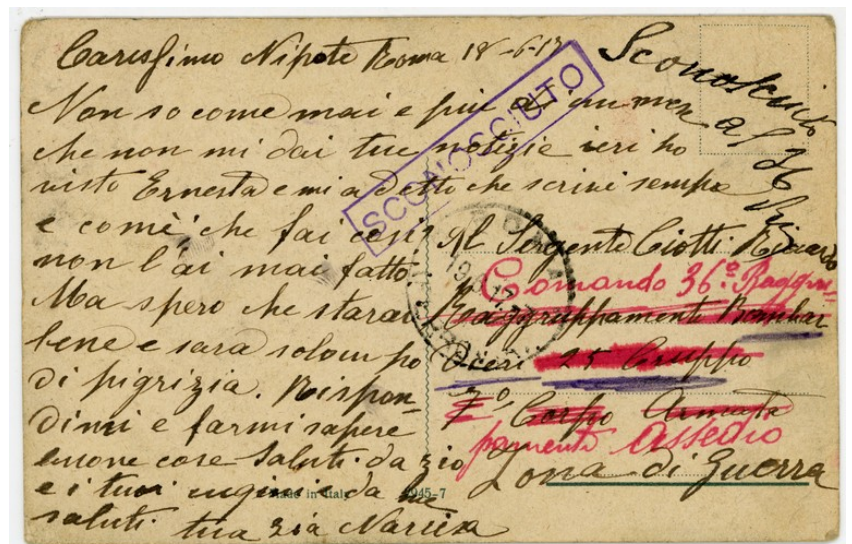 Carissimo Nipote Roma 18-6-17
Non so come mai e piu di un mese
che non mi dai tue notizie ieri ho
visto Ernesta e mi a detto che scrivi sempre
e comè che fai cosi
non l'ai mai fatto
Ma spero che starai
bene e sara solo un po
di pigrizia. Rispon-
dimi e farmi sapere
buone cose Saluti da zio
e i tuoi cugini e da me
saluti. tua zia Narcisa
SCONOSCIUTO
Sconosciuto
al 36
Al Sergente Ciotti Riccardo
Comando 36.° Raggru-
Raggruppamento Bombar
dieri 25 Gruppo
7° Corpo Armata
pamento Assedio
Zona di Guerra
Made in Italy 1945-7